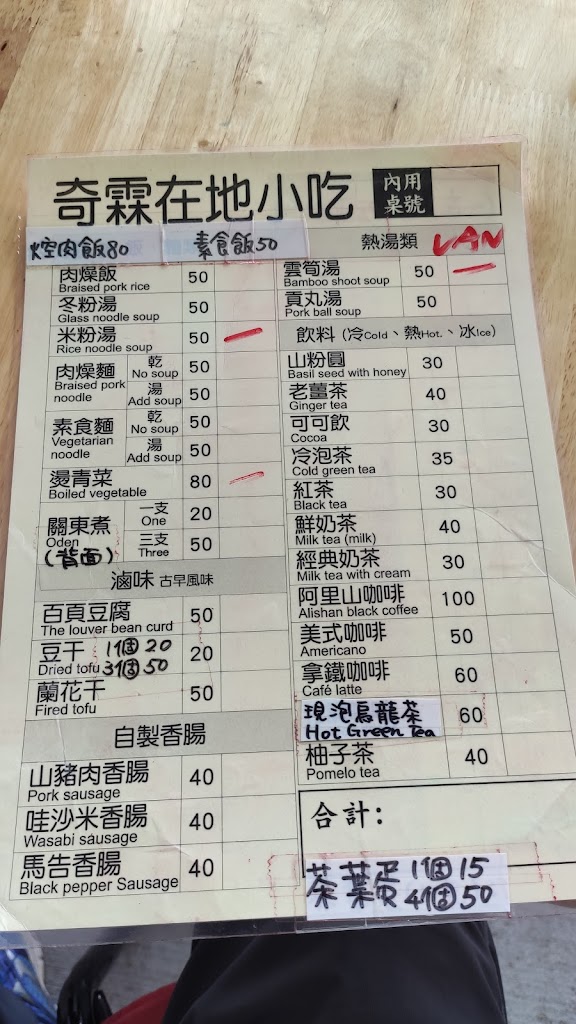 奇霖在地小吃
內用
桌號
焢肉飯80 素食飯50
肉燥飯 50
Braised pork rice
冬粉湯 50
Glass noodle soup
米粉湯 50
Rice noodle soup
肉燥麵 乾 50
Braised pork noodle No soup
湯 50
Add soup
素食麵 乾 50
Vegetarian noodle No soup
湯 50
Add soup
燙青菜 80
Boiled vegetable
關東煮 一支 20
Oden One
(背面) 三支 50
Three
滷味 古早風味
百頁豆腐 50
The louver bean curd
豆干 1個20 20
Dried tofu 3個50
蘭花干 50
Fired tofu
自製香腸
山豬肉香腸 40
Pork sausage
哇沙米香腸 40
Wasabi sausage
馬告香腸 40
Black pepper Sausage
熱湯類 VAN
雲筍湯 50
Bamboo shoot soup
貢丸湯 50
Pork ball soup
飲料 (冷Cold、熱Hot.、冰Ice)
山粉圓 30
Basil seed with honey
老薑茶 40
Ginger tea
可可飲 30
Cocoa
冷泡茶 35
Cold green tea
紅茶 30
Black tea
鮮奶茶 40
Milk tea (milk)
經典奶茶 30
Milk tea with cream
阿里山咖啡 100
Alishan black coffee
美式咖啡 50
Americano
拿鐵咖啡 60
Café latte
現泡烏龍茶 60
Hot Green Tea
柚子茶 40
Pomelo tea
合計:
茶葉蛋 1個15
4個50